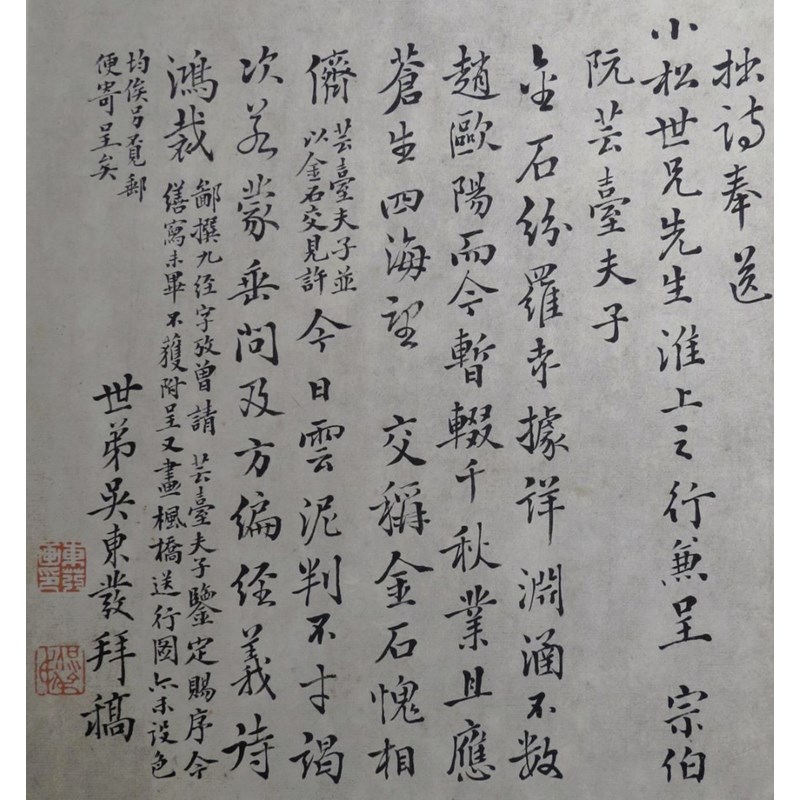 拙詩奉送
小松世兄先生淮上之行兼呈 宗伯
阮芸臺夫子
金石紛羅考據詳淵涵不數
趙歐陽而今暫輟千秋業且應
蒼生四海望 交稱金石愧相
儕 芸臺夫子並
以金石交見許
今日雲泥判不才謁
次若蒙垂問及方編經義詩
鴻裁
鄙撰九經字攷曾請 芸臺夫子鑒定賜序今
繕寫未畢不獲附呈又畫楓橋送行圖亦未設色
均俟另覓郵
便寄呈矣
世弟吳東發拜稿